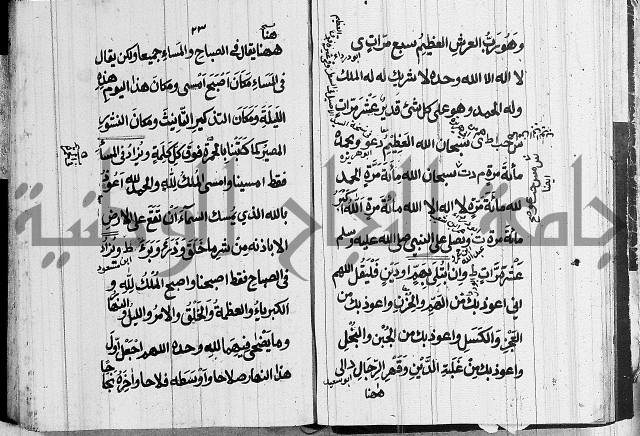 وهو رب العرش العظيم سبع مرات ى
لا اله الا الله وحده لا شريك له له الملك
وله الحمد وهو على كل شئ قدير عشر مرات
سبحان الله العظيم وبحمده
مائة مرة م د ت سبحان الله مائة مرة الحمد
لله مائة مرة لا اله الا الله مائة مرة الله اكبر
مائة مرة ت ويصلى على النبى صلى الله عليه وسلم
عشر مرات ط وان ابتلى بهم او دين فليقل اللهم
انى اعوذ بك من الهم والحزن واعوذ بك من
العجز والكسل واعوذ بك من الجبن والبخل
واعوذ بك من غلبة الدين وقهر الرجال د الى
ابو سعيد
ههنا
٢٣
هنا
ههنا يقال فى الصباح والمساء جميعا ولكن يقال
فى المساء مكان اصبح امسى ومكان هذا اليوم هذه
الليلة ومكان التذكير التانيث ومكان النشور
المصير كما كتبناه بالحمرة فوق كل كلمة ويزاد فى المساء
فقط امسينا وامسى الملك لله والحمد لله اعوذ
بالله الذى يمسك السماء ان تقع على الارض
الا باذنه من شر ما خلق وذرء وبرء ط ويزاد
ابن مسعود
فى الصباح فقط اصبحنا واصبح الملك لله و
الكبرياء والعظمة والخلق والامر والليل والنهار
وما يضحى فيهما لله وحده اللهم اجعل اول
هذا النهار صلاحا واوسطه فلاحا واخره نجاحا
جامعة النجاح الوطنية